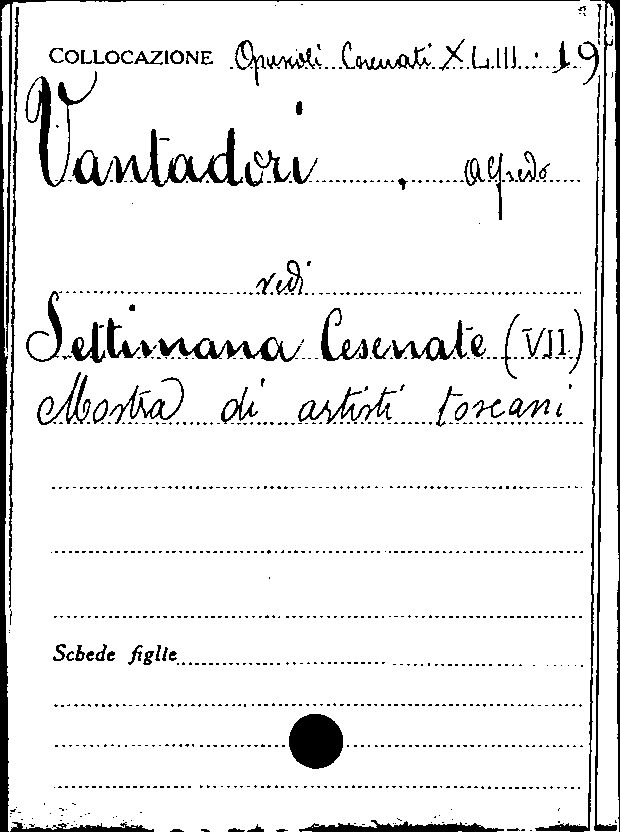 COLLOCAZIONE Opuscoli Cesenati XLIII. 19
Vantadori, Alfredo
vedi
Settimana Cesenate (VII)
Mostra di artisti toscani
Schede figlie